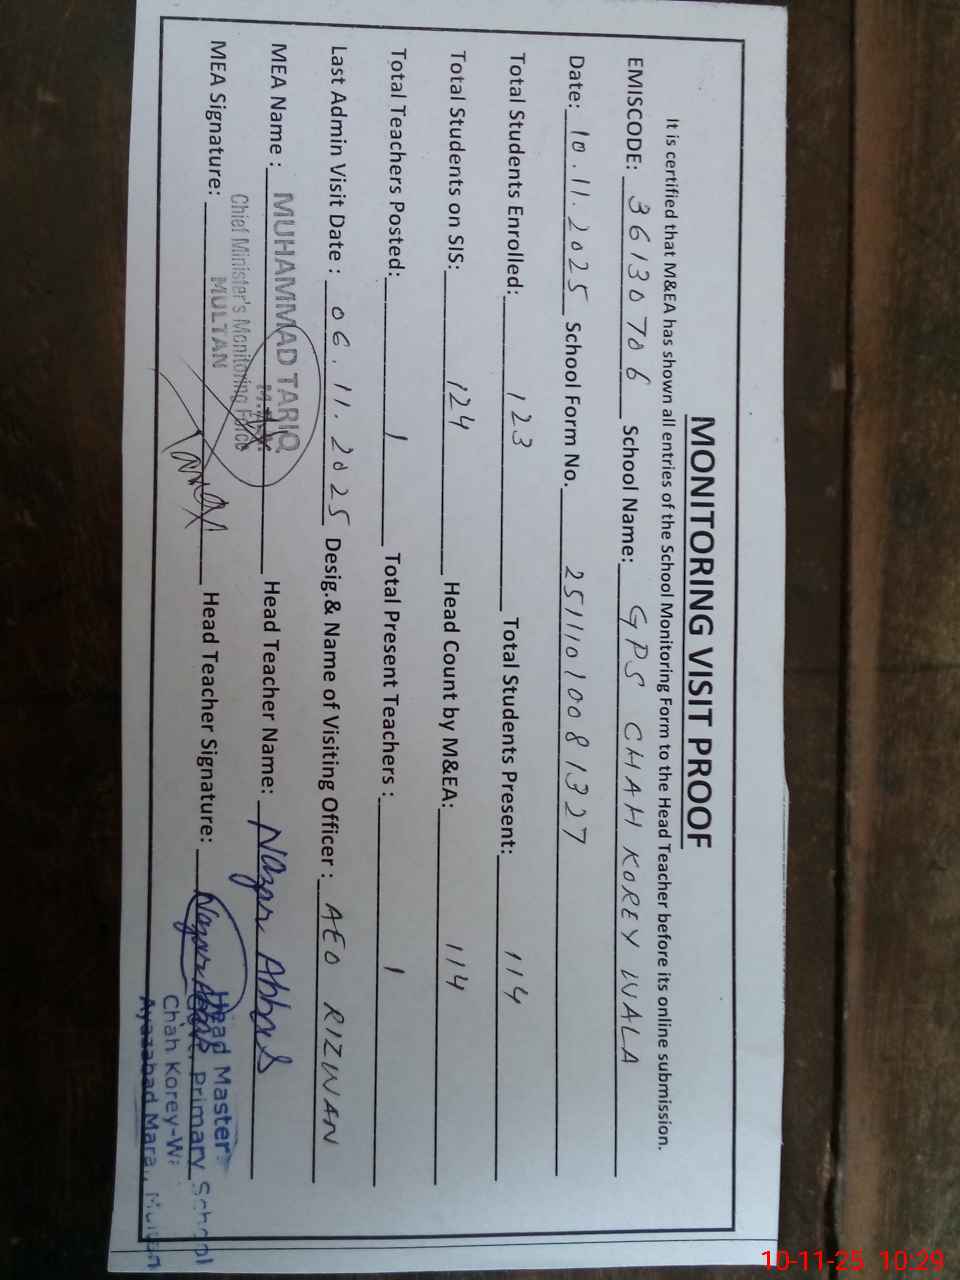 MONITORING VISIT PROOF
It is certified that M&EA has shown all entries of the School Monitoring Form to the Head Teacher before its online submission.
EMISCODE: 36130706 School Name: GPS CHAH KOREY WALA
Date: 10.11.2025 School Form No. 2511101008 1327
Total Students Enrolled: 123 Total Students Present: 114
Total Students on SIS: 124 Head Count by M&EA: 114
Total Teachers Posted: 1 Total Present Teachers : 1
Last Admin Visit Date : 06.11.2025 Desig.& Name of Visiting Officer : AEO RIZWAN
MEA Name : MUHAMMAD TARIQ Head Teacher Name: Nazar Abbas
Chief Minister's Monitoring Force
MULTAN
MEA Signature: Tariq Head Teacher Signature: Nazar Abbas
Head Master
Primary School
Chah Korey-W
Ayazabad Mara, Multan
10-11-25 10:29